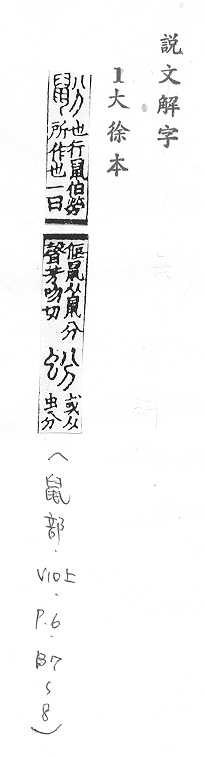 説文解字
1大徐本
鼢
地行鼠伯勞
所作也一曰
偃鼠从鼠分
聲芳吻切
蚡
或从
虫分
(鼠部.V10上.P.6.B7~8)